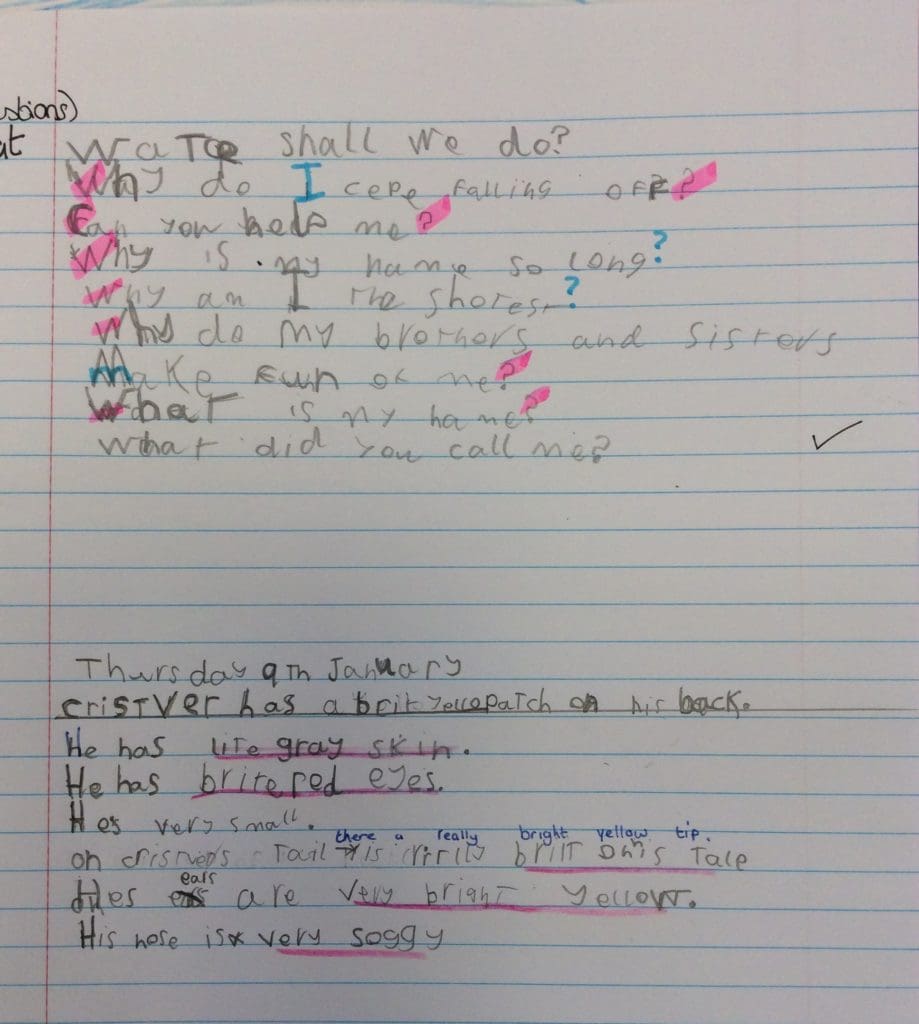 stions)
at
Wate shall we do?
Why do I cepe falling off?
Can you help me?
Why is my name so long?
Why am I the shorest?
Why do my brothors and sisters
Make fun of me?
What is my name?
What did you call me?
Thursday 9th January
cristver has a brit yellepatch on his back.
He has lite gray skin.
He has brite red eyes.
Hes very small.
there a really bright yellow tip.
on tail is brilt on is tale
ears
Hes are very bright yellow.
His nose is very soggy